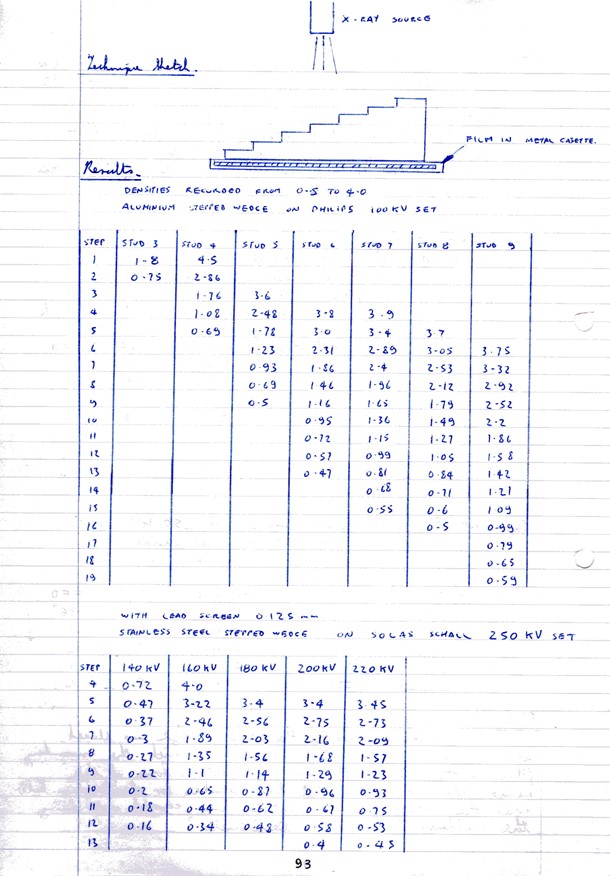 X-RAY SOURCE
Technique Sketch.
FILM IN METAL CASETTE.
Results.
DENSITIES RECORDED FROM 0.5 TO 4.0
ALUMINIUM STEPPED WEDGE ON PHILIPS 100KV SET
STEP STUD 3 STUD 4 STUD 5 STUD 6 STUD 7 STUD 8 STUD 9
1 1.8 4.5
2 0.75 2.86
3 1.76 3.6
4 1.08 2.48 3.8 3.9
5 0.69 1.78 3.0 3.4 3.7
6 1.23 2.31 2.89 3.05 3.75
7 0.93 1.86 2.4 2.53 3.32
8 0.69 1.46 1.96 2.12 2.92
9 0.5 1.16 1.65 1.79 2.52
10 0.95 1.36 1.49 2.2
11 0.72 1.15 1.27 1.86
12 0.57 0.99 1.05 1.58
13 0.47 0.81 0.84 1.42
14 0.68 0.71 1.21
15 0.55 0.6 1.09
16 0.5 0.99
17 0.79
18 0.65
19 0.59
WITH LEAD SCREEN 0.125 mm
STAINLESS STEEL STEPPED WEDGE ON SOLAS SCHALL 250 KV SET
STEP 140 KV 160 KV 180 KV 200 KV 220 KV
4 0.72 4.0
5 0.47 3.22 3.4 3.4 3.45
6 0.37 2.46 2.56 2.75 2.73
7 0.3 1.89 2.03 2.16 2.09
8 0.27 1.35 1.56 1.68 1.57
9 0.22 1.1 1.14 1.29 1.23
10 0.2 0.65 0.87 0.96 0.93
11 0.18 0.44 0.62 0.67 0.75
12 0.16 0.34 0.48 0.58 0.53
13 0.4 0.45
93